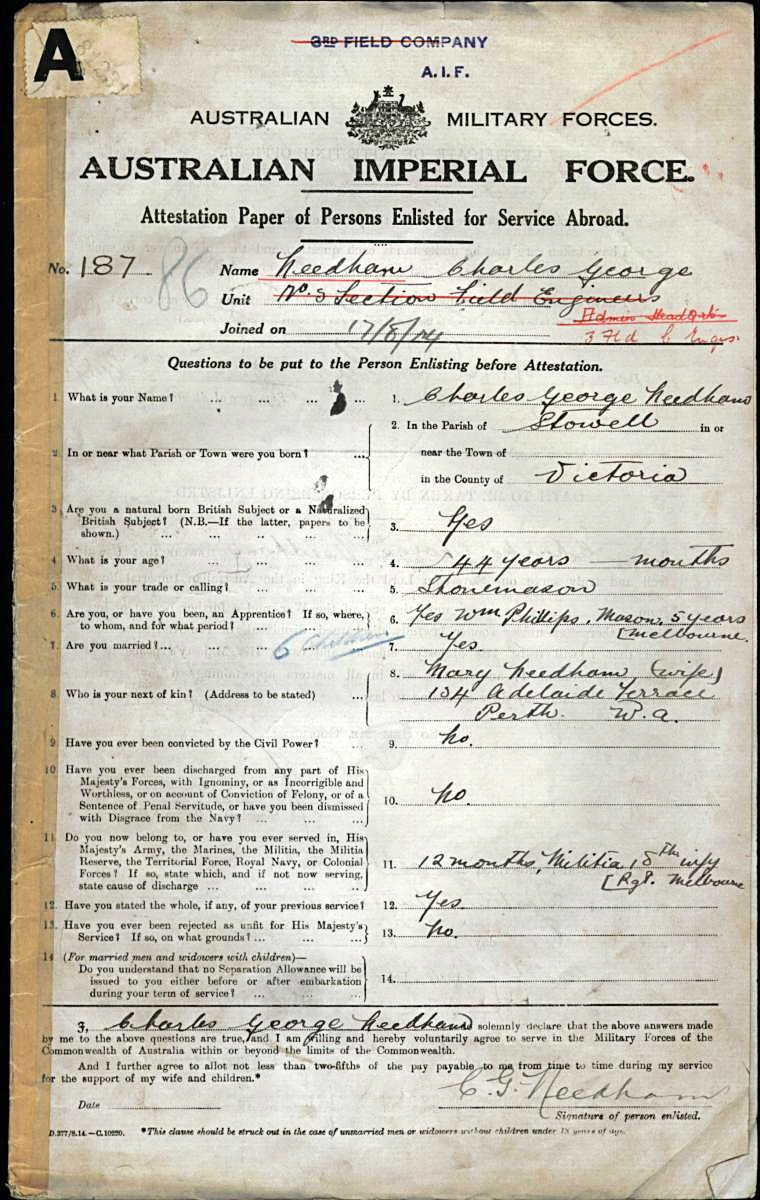 A
3RD FIELD COMPANY
A.I.F.
AUSTRALIAN MILITARY FORCES.
AUSTRALIAN IMPERIAL FORCE.
Attestation Paper of Persons Enlisted for Service Abroad.
No. 187 86 Name Needham Charles George
Unit No 3 Section Field Engineers
Admin Head Qrs
Joined on 17/8/14 3 Fld C Engrs.
Questions to be put to the Person Enlisting before Attestation.
1. What is your Name? ... ... ... ... 1. Charles George Needham
2. In or near what Parish or Town were you born? ... 2. In the Parish of Stowell in or
near the Town of
in the County of Victoria
3. Are you a natural born British Subject or a Naturalized
British Subject? (N.B.—If the latter, papers to be
shown.) ... ... ... ... ... 3. Yes
4. What is your age? ... ... ... ... 4. 44 years — months
5. What is your trade or calling? ... ... ... 5. Stonemason
6. Are you, or have you been, an Apprentice? If so, where,
to whom, and for what period? ... ... ... 6. Yes Wm Phillips, Mason, 5 years
[Melbourne.
7. Are you married?... ... ... 6 children 7. Yes
8. Who is your next of kin? (Address to be stated) ... 8. Mary Needham (wife)
134 Adelaide Terrace
Perth. W.A.
9. Have you ever been convicted by the Civil Power? ... 9. No.
10. Have you ever been discharged from any part of His
Majesty's Forces, with Ignominy, or as Incorrigible and
Worthless, or on account of Conviction of Felony, or of a
Sentence of Penal Servitude, or have you been dismissed
with Disgrace from the Navy? ... ... ... 10. No
11. Do you now belong to, or have you ever served in, His
Majesty's Army, the Marines, the Militia, the Militia
Reserve, the Territorial Force, Royal Navy, or Colonial
Forces? If so, state which, and if not now serving,
state cause of discharge ... ... ... ... 11. 12 months, Militia, 18th infy
[Rgt. Melbourne
12. Have you stated the whole, if any, of your previous service? 12. Yes
13. Have you ever been rejected as unfit for His Majesty's
Service? If so, on what grounds? ... ... ... 13. No.
14. (For married men and widowers with children)—
Do you understand that no Separation Allowance will be
issued to you either before or after embarkation
during your term of service? ... ... ... 14.
I, Charles George Needham solemnly declare that the above answers made
by me to the above questions are true, and I am willing and hereby voluntarily agree to serve in the Military Forces of the
Commonwealth of Australia within or beyond the limits of the Commonwealth.
And I further agree to allot not less than two-fifths of the pay payable to me from time to time during my service
for the support of my wife and children.*
C. G. Needham
Date
Signature of person enlisted.
D.377/8.14.—C.10220. *This clause should be struck out in the case of unmarried men or widowers without children under 18 years of age.